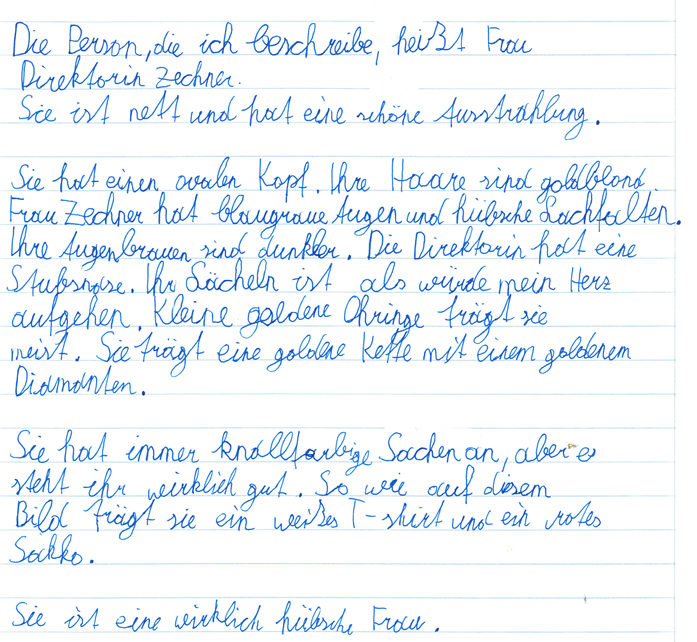 Die Person, die ich beschreibe, heißt Frau
Direktorin Zechner.
Sie ist nett und hat eine schöne Ausstrahlung.
Sie hat einen ovalen Kopf. Ihre Haare sind goldblond.
Frau Zechner hat blaugraue Augen und hübsche Lachfalten.
Ihre Augenbrauen sind dunkler. Die Direktorin hat eine
Stupsnase. Ihr Lächeln ist als würde mein Herz
aufgehen. Kleine goldene Ohringe trägt sie
meist. Sie trägt eine goldene Kette mit einem goldenem
Diamanten.
Sie hat immer knallfarbige Sachen an, aber es
steht ihr wirklich gut. So wie auf diesem
Bild trägt sie ein weißes T-shirt und ein rotes
Sakko.
Sie ist eine wirklich hübsche Frau.